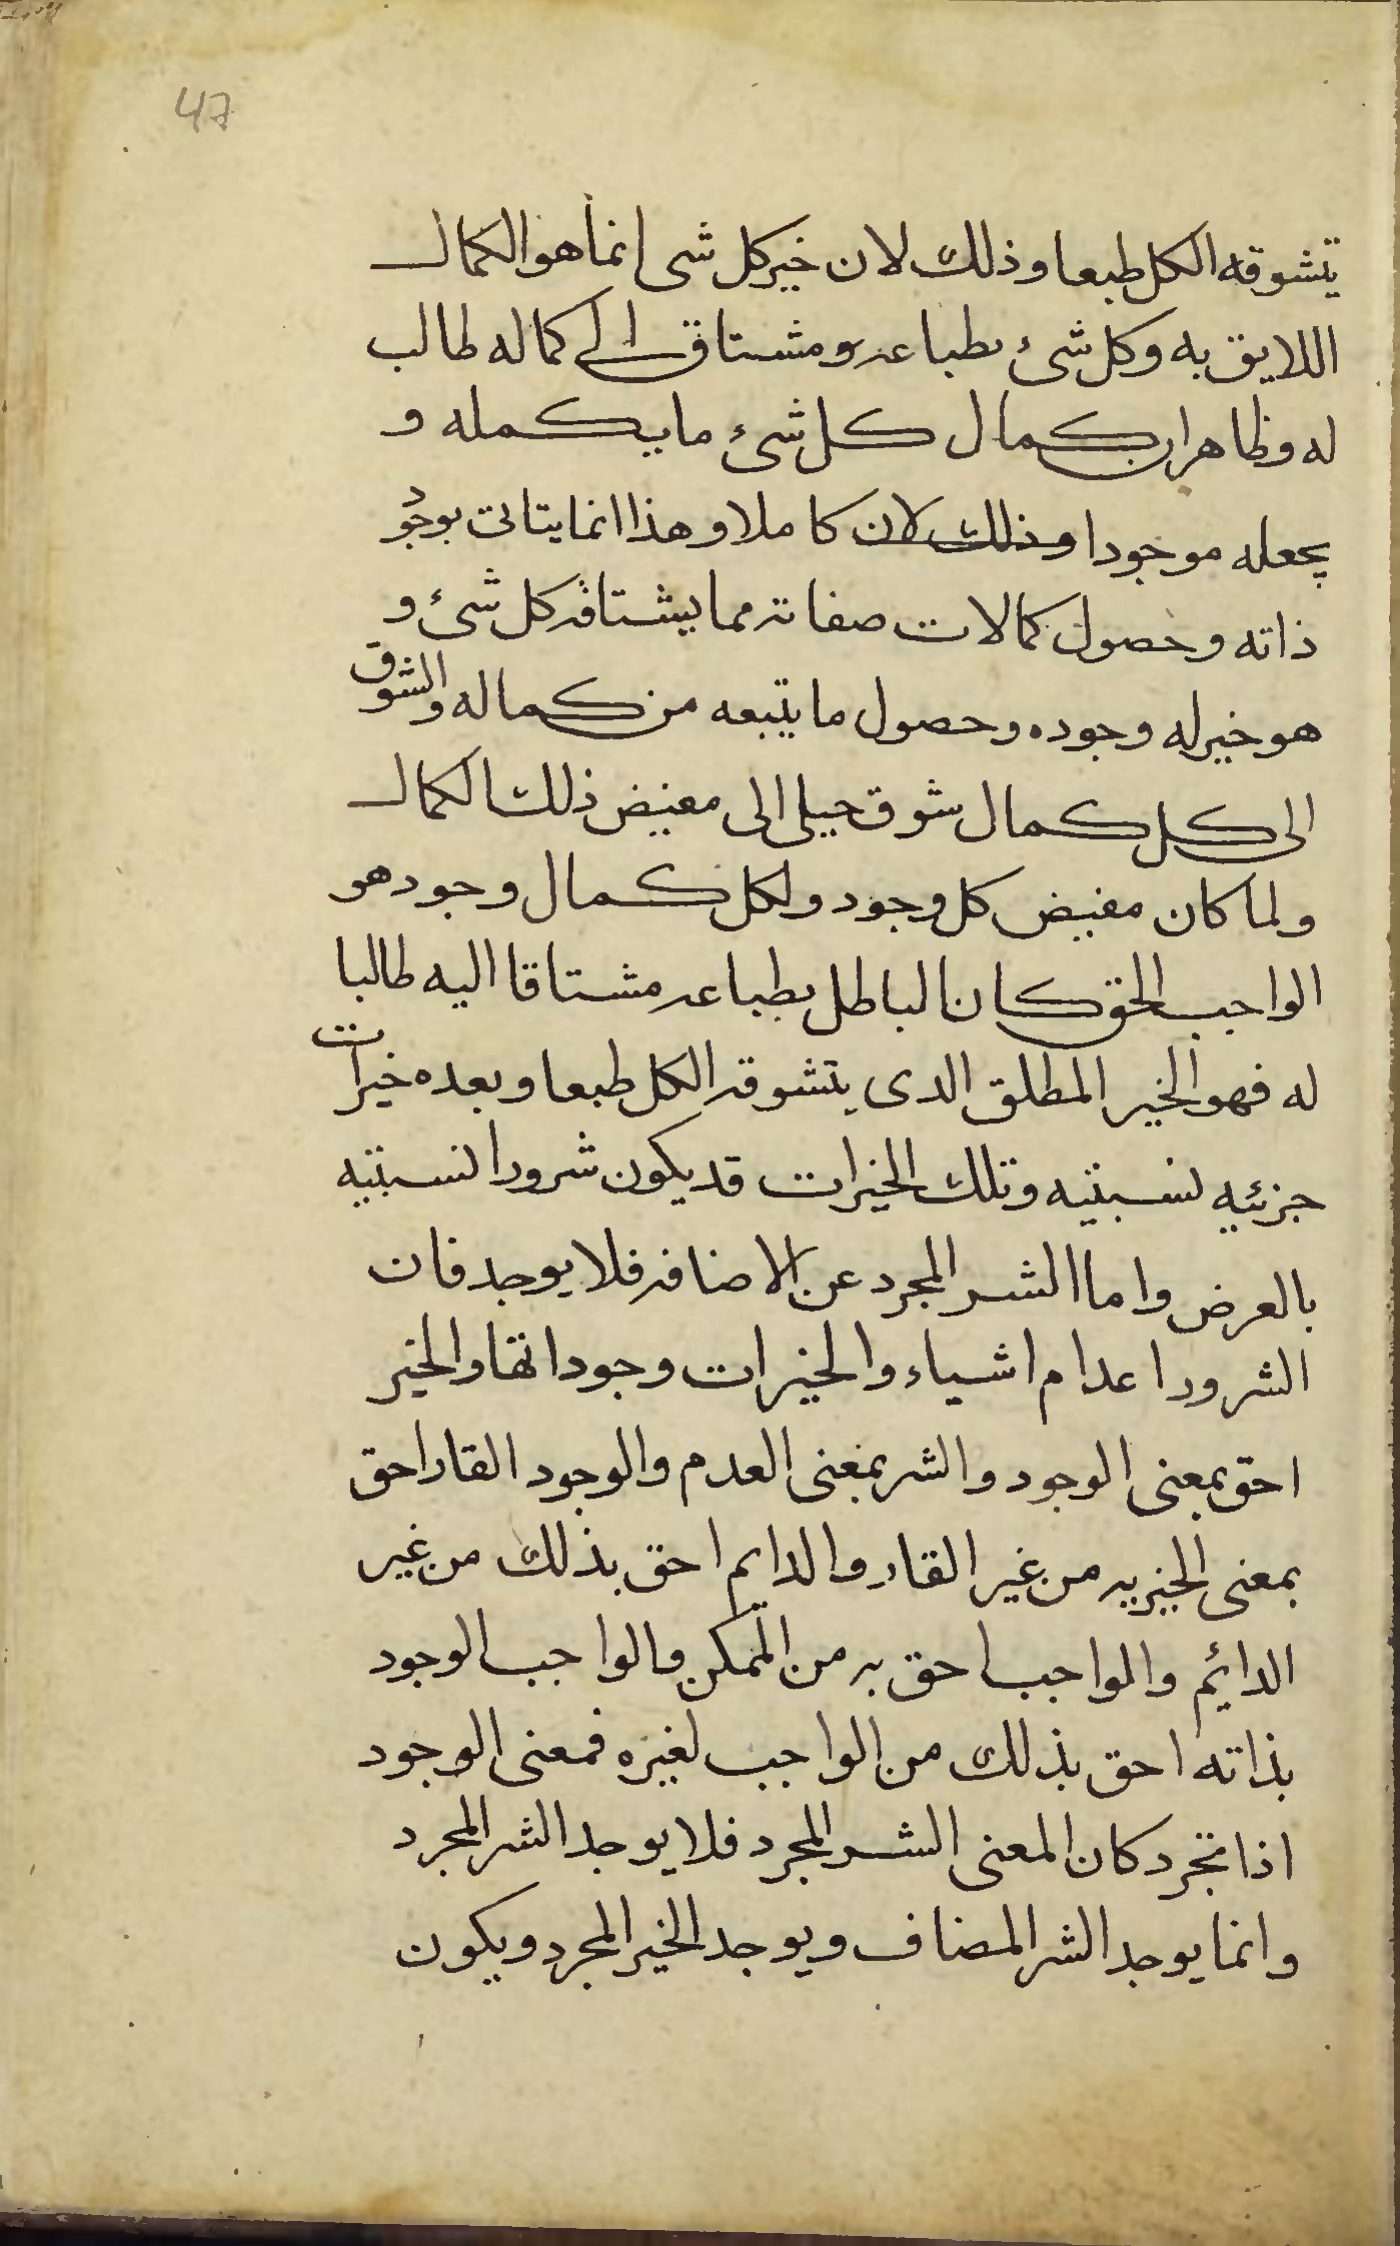 47
يتشوقه الكل طبعا وذلك لان خير كل شى انما هو الكمال
اللايق به وكل شىء بطباعه ومشتاق الى كماله طالب
له وظاهر ان كمال كل شىء ما يكمله و
يجعله موجودا وذلك لان كاملا وهذا انما يتاتى بوجود
ذاته وحصول كمالات صفاته مما يشتاقه كل شىء و
هو خير له وجوده وحصول ما يتبعه من كماله والشوق
الى كل كمال شوق جبلى الى مفيض ذلك الكمال
ولما كان مفيض كل وجود ولكل كمال وجود هو
الواجب الحق كان الباطل بطباعه مشتاقا اليه طالبا
له فهو الخير المطلق الدى يتشوقه الكل طبعا وبعده خيرات
جزئيه نسبتيه وتلك الخيرات قد يكون شرورا نسبتيه
بالعرض واما الشر المجرد عن الاضافه فلا يوجد فان
الشرور اعدام اشياء والخيرات وجوداتها والخير
احق بمعنى الوجود والشر بمعنى العدم والوجود القار احق
بمعنى الخيريه من غير القار والدايم احق بذلك من غير
الدائم والواجب احق به من الممكن والواجب الوجود
بذاته احق بذلك من الواجب لغيره فمعنى الوجود
اذا تجرد كان المعنى الشر المجرد فلا يوجد الشر المجرد
وانما يوجد الشر المضاف ويوجد الخير المجرد ويكون